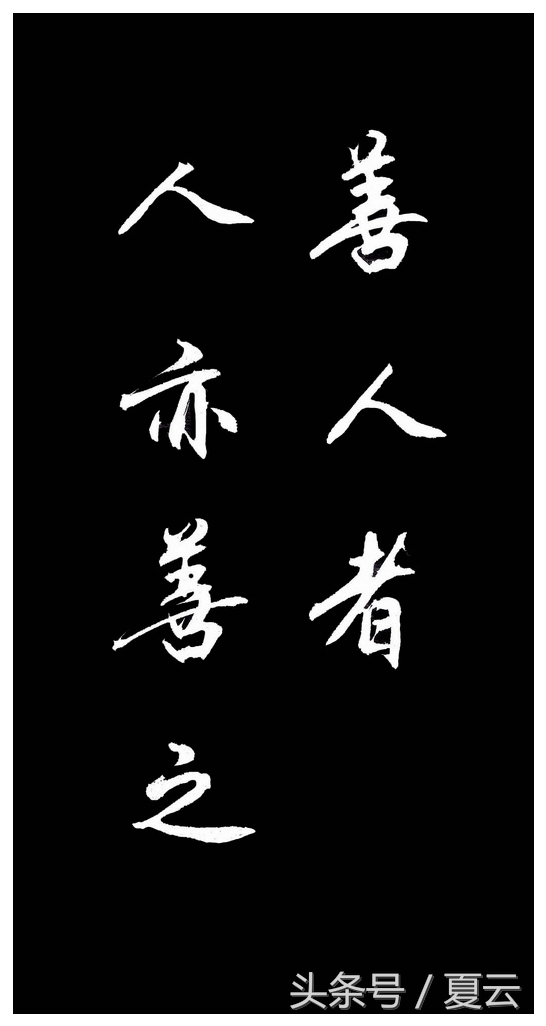 善人者
人亦善之
头条号 / 夏云